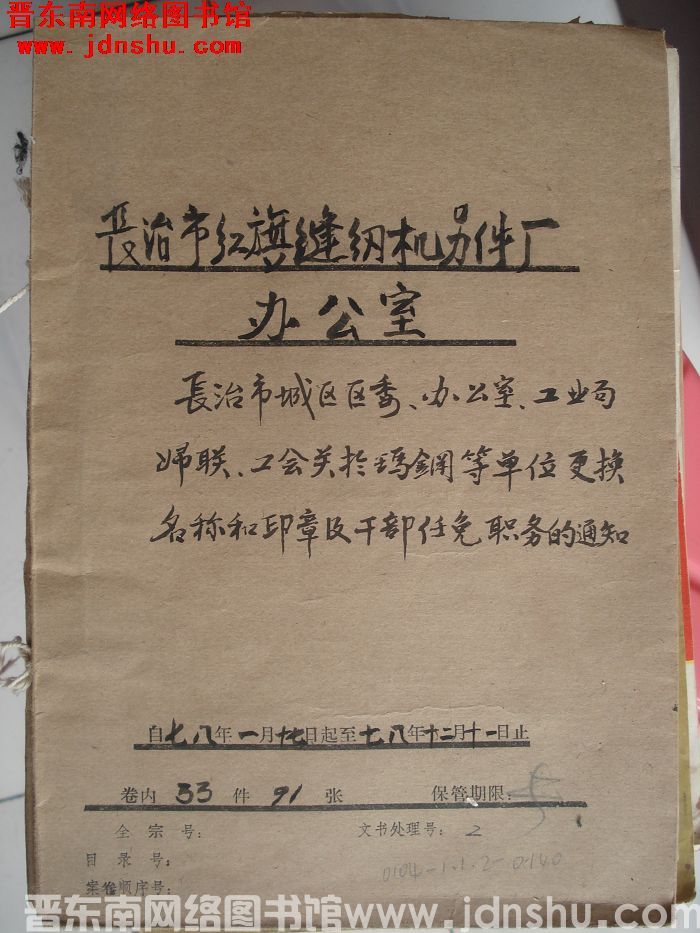 晋东南网络图书馆
www.jdnshu.com
長治市红旗缝纫机另件厂
办公室
長治市城区区委、办公室、工业局
婦联、工会关於玛鋼等单位更换
名称和印章及干部任免职务的通知
自七八年一月十七日起至七八年十二月十一日止
卷内 33 件 91 张 保管期限:长
全宗号: 文书处理号: 2
目录号:
案卷顺序号:
0104-1.1.2-0140
晋东南网络图书馆www.jdnshu.com